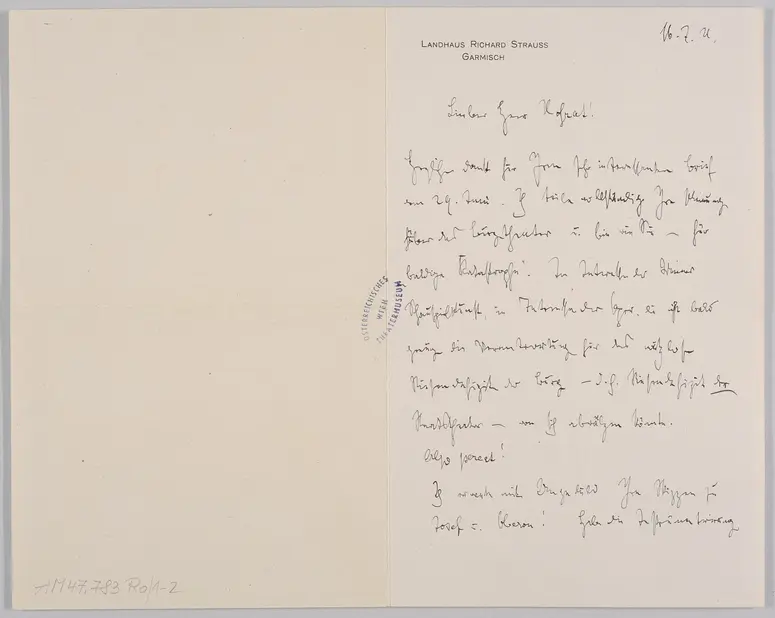 LANDHAUS RICHARD STRAUSS
GARMISCH
16. 7. 21.
Lieber Herr Hofrat!
Herzlichen Dank für Ihren sehr interessanten Brief
vom 29. Juni. Ich teile vollständig Ihre Meinung
über das Burgtheater u. bin wie Sie – für
baldige „Katastrophe". Im Interesse der Wiener
Schauspielkunst, im Interesse der Oper, die ich bald
genug die Verantwortung für das nutzlose
Riesendefizit der Burg – d. h. Riesendefizit der
Staatstheater – von sich abwälzen könnte.
Also pereat!
Ich erwarte mit Ungeduld Ihre Skizzen zu
Josef u. Oberon! Habe die Instrumentierung
ÖSTERREICHISCHES
THEATERMUSEUM
WIEN
AM 47.783 Ro/1-2